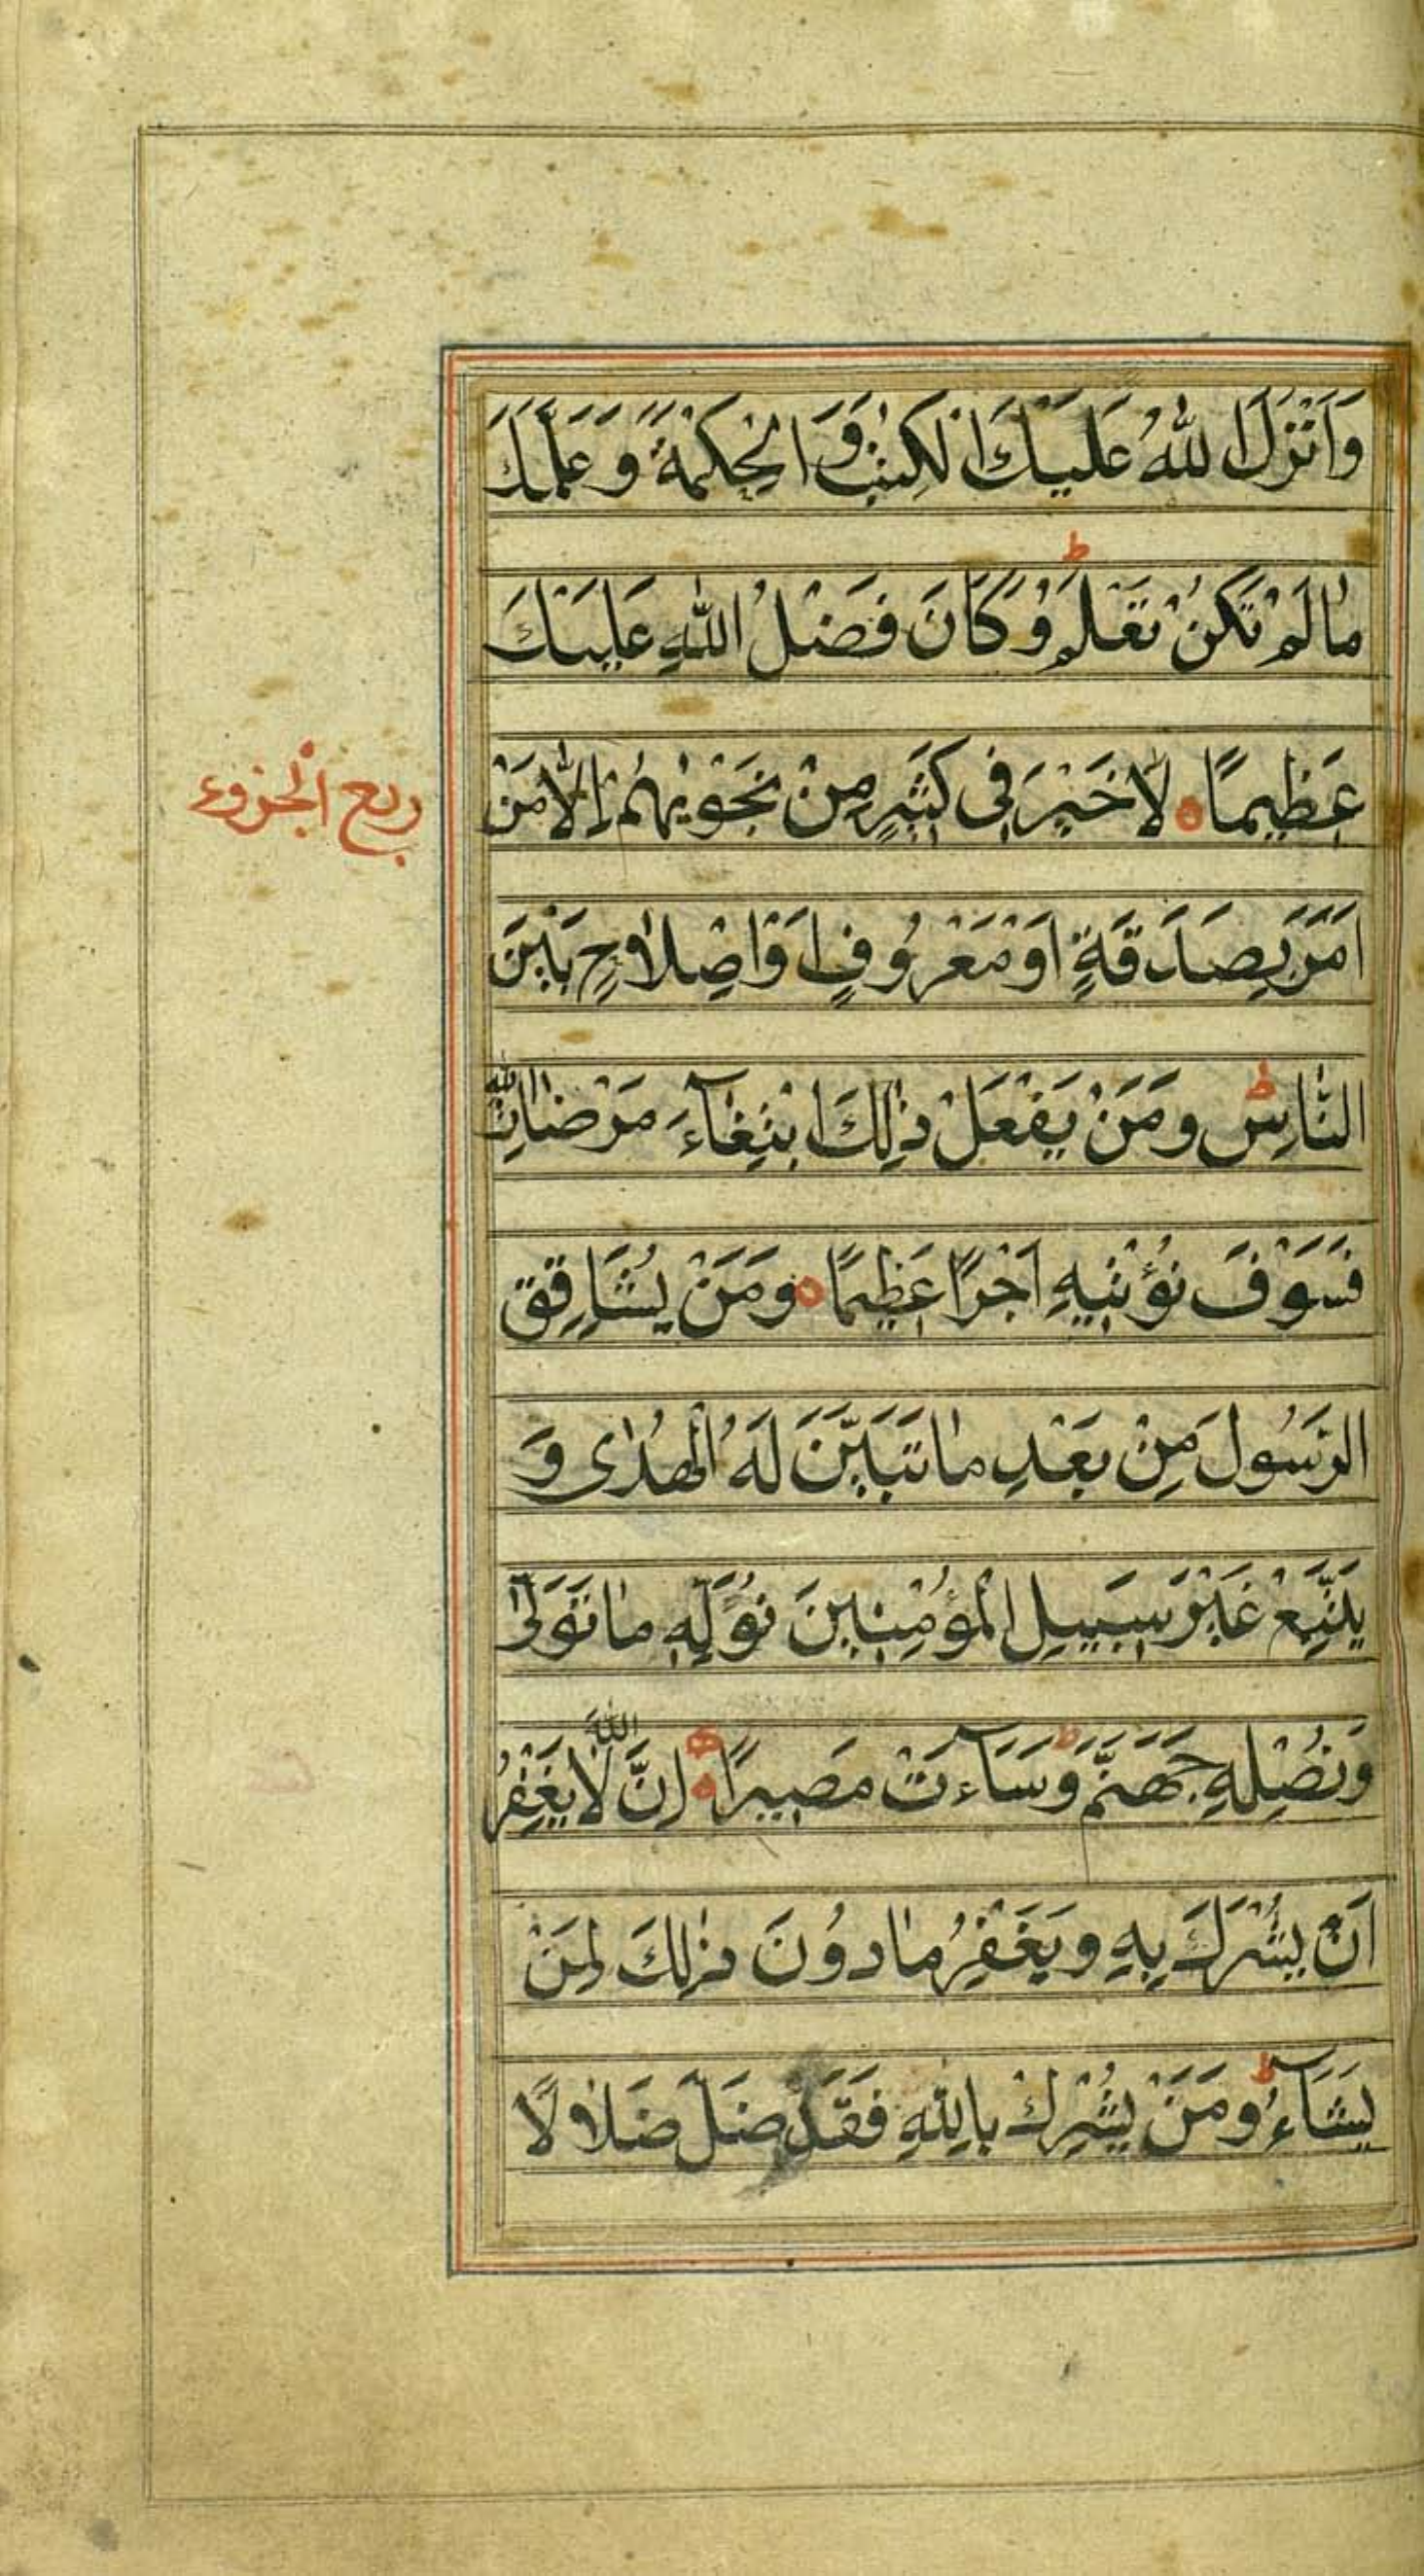 وَاَنْزَلَ اللّٰهُ عَلَيْكَ الْكِتٰبَ وَالْحِكْمَةَ وَعَلَّمَكَ
ط
مٰا لَمْ تَكُنْ تَعْلَمُ وَكَانَ فَضْلُ اللّٰهِ عَلَيْكَ
عَظِيمًا ه لٰا خَيْرَ فِى كَثِيرٍ مِنْ نَجْوٰيهُمْ اِلّٰا مَنْ
ربع الجزوء
اَمَرَ بِصَدَقَةٍ اَوْ مَعْرُوفٍ اَوْ اِصْلٰاحٍ بَيْنَ
النّٰاسِ ط وَمَنْ يَفْعَلْ ذٰلِكَ ابْتِغٰآءَ مَرْضٰاتِ اللّٰه
فَسَوْفَ نُؤْتِيهِ اَجْرًا عَظِيمًا ه وَمَنْ يُشَاقِقِ
الرَسُولَ مِنْ بَعْدِ مٰا تَبَيَّنَ لَهُ الْهُدٰى وَ
يَتَّبِعْ غَيْرَ سَبِيلِ الْمُؤْمِنِينَ نُوَلِّهِ مٰا تَوَلّٰى
وَنُصْلِهِ جَهَنَّمَ ط وَسَآءَتْ مَصِيرًا ه اِنَّ اللّٰهَ لٰا يَغْفِرُ
اَنْ يُشْرَكَ بِهِ وَيَغْفِرُ مٰا دُونَ ذٰلِكَ لِمَنْ
يَشَآءُ ط وَمَنْ يُشْرِكْ بِاللّٰهِ فَقَدْ ضَلَّ ضَلٰالًا